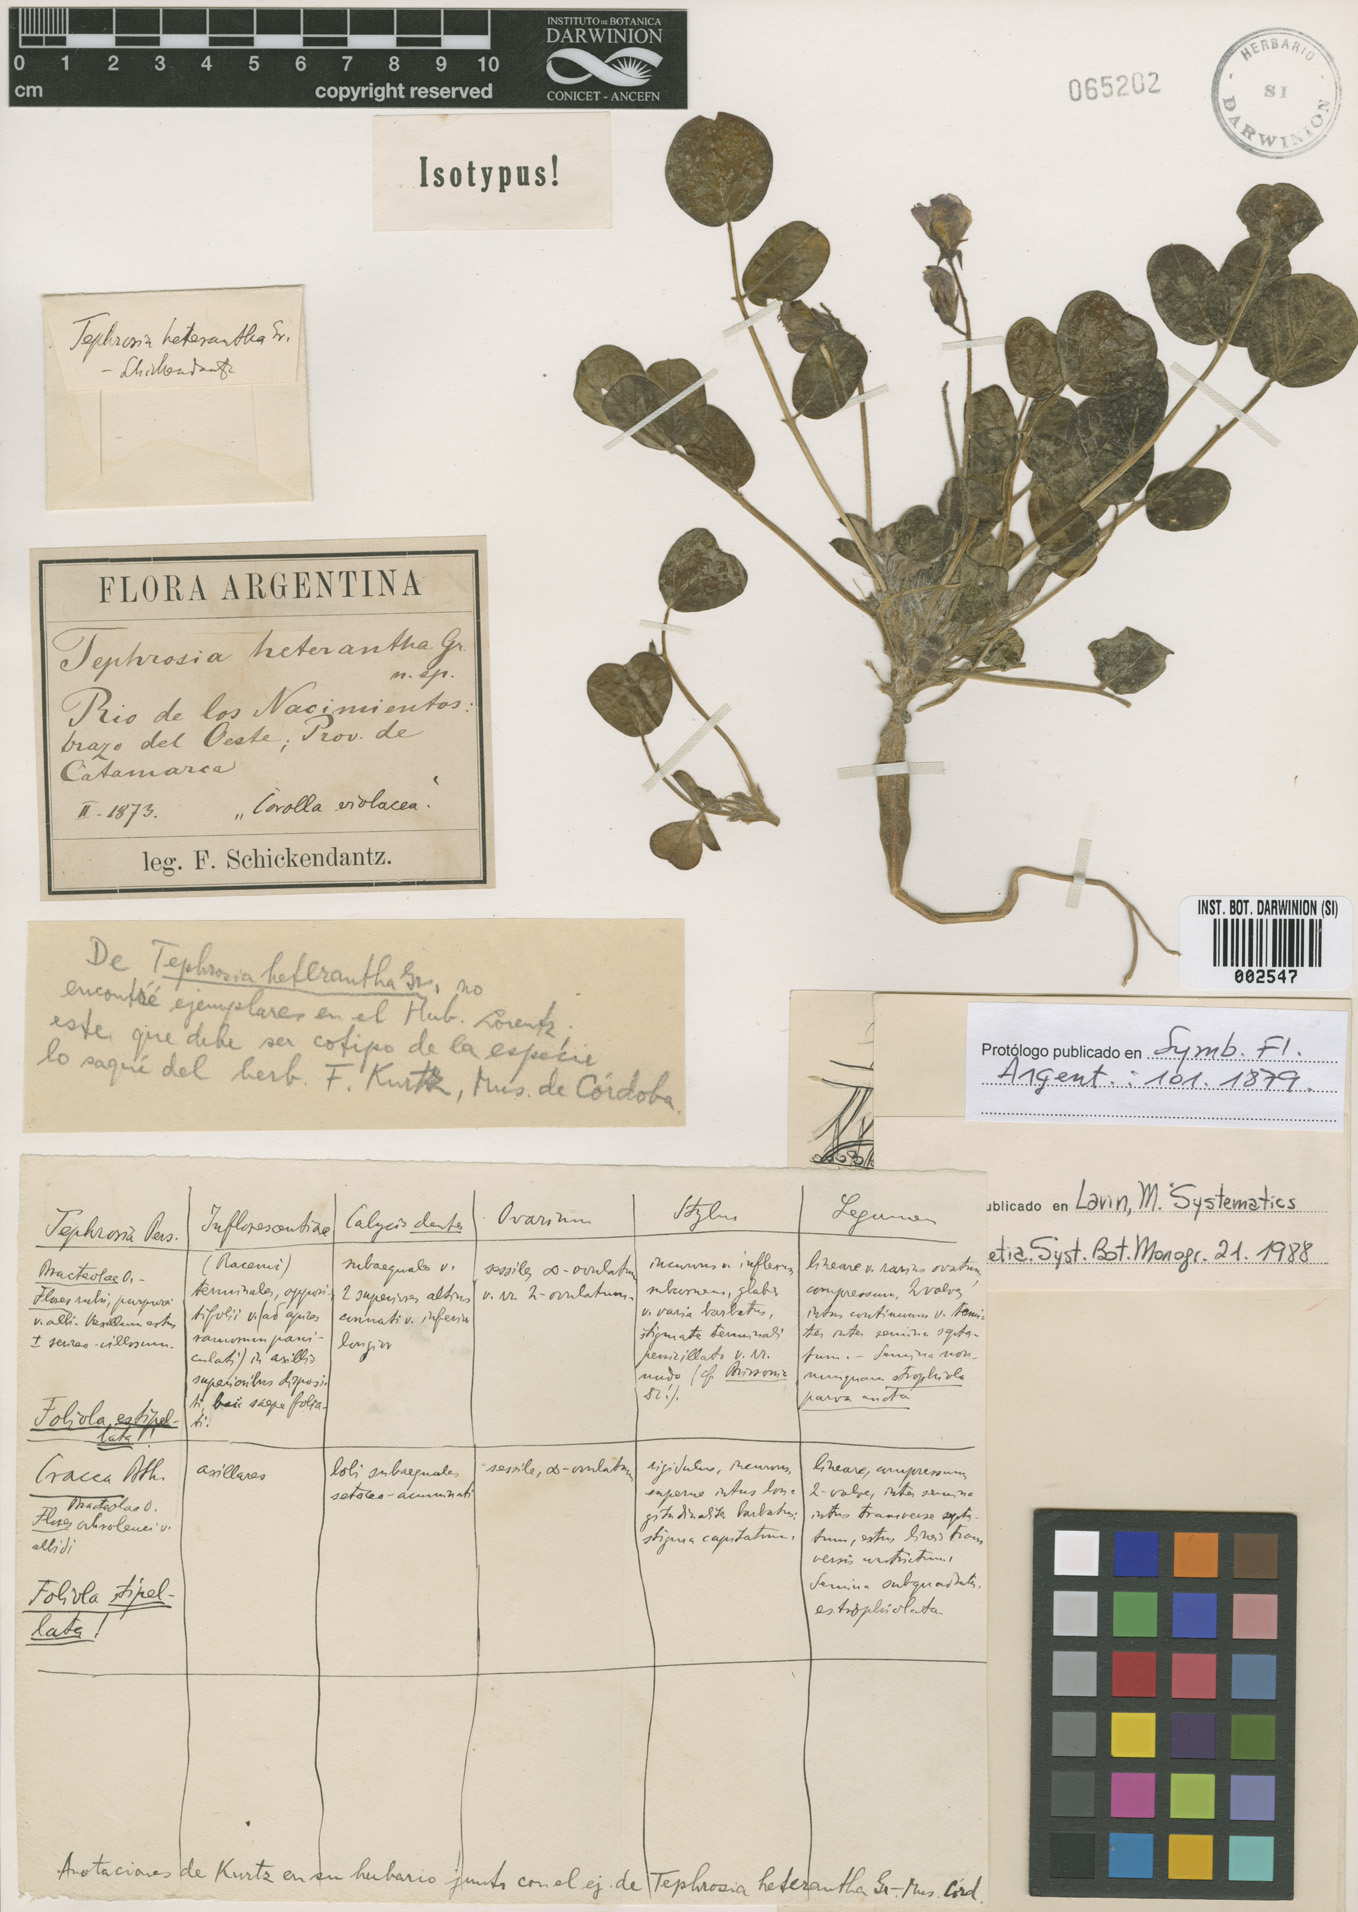 0 1 2 3 4 5 6 7 8 9 10
cm
copyright reserved
INSTITUTO DE BOTANICA
DARWINION
CONICET - ANCEFN
065202
HERBARIO
SI
DARWINION
Isotypus!
Tephrosia heterantha Gr.
– Schickendantz
FLORA ARGENTINA
Tephrosia heterantha Gr.
n. sp.
Rio de los Nacimientos:
brazo del Oeste; Prov. de
Catamarca
II - 1873. „Corolla violacea."
leg. F. Schickendantz.
De Tephrosia heterantha Gr., no
encontré ejemplares en el Hub. Lorentz;
este, que debe ser cotipo de la especie
lo saqué del herb. F. Kurtz, Mus. de Córdoba.
INST. BOT. DARWINION (SI)
002547
Protólogo publicado en Symb. Fl.
Argent. : 101. 1879.
ublicado en Lavin, M. "Systematics
etia. Syst. Bot. Monogr. 21. 1988
Tephrosia Pers.
Bracteolae 0.–
Flores rubri, purpurei
v. albi. Vexillum extus
± sericeo-villosum.
Foliola estipel-
lata!
Inflorescentiae
(Racemi)
terminales, opposi-
tifolii v. (ad apices
ramorum pani-
culati) in axillis
superioribus disposi-
ti, saepe folia-
ti.
Calycis dentes
subaequales v.
2 superiores altius
connati v. inferior
longior
Ovarium
sessile, ∞-ovulatum
v. rr. 2-ovulatum.
Stylus
incurvus v. inflexus
glaber
v. varia barbatus,
stigmate terminali
penicillato v. rr.
nudo (cf. Brissonia
DC!).
Legumen
lineare v. rarius ovatum,
compressum, 2 valve,
intus continuum v. tenui-
ter inter semina septa-
tum. – Semina non-
nunquam strophiola
parva aucta
Cracca Bth.
Bracteolae 0.
Flores ochroleuci v.
albidi
Foliola stipel-
lata!
axillares
lobi subaequales
setaceo-acuminati
sessile, ∞-ovulatum
rigidulus, incurvus,
superne intus lon-
gitudinaliter barbatus;
stigma capitatum.
lineare, compressum,
2-valve, inter semina
intus transverse septa-
tum, extus lineis trans
versis constrictum.
Semina subquadrata,
estrophiolata
Anotaciones de Kurtz en su herbario junto con el ej. de Tephrosia heterantha Gr – Mus. Córd.